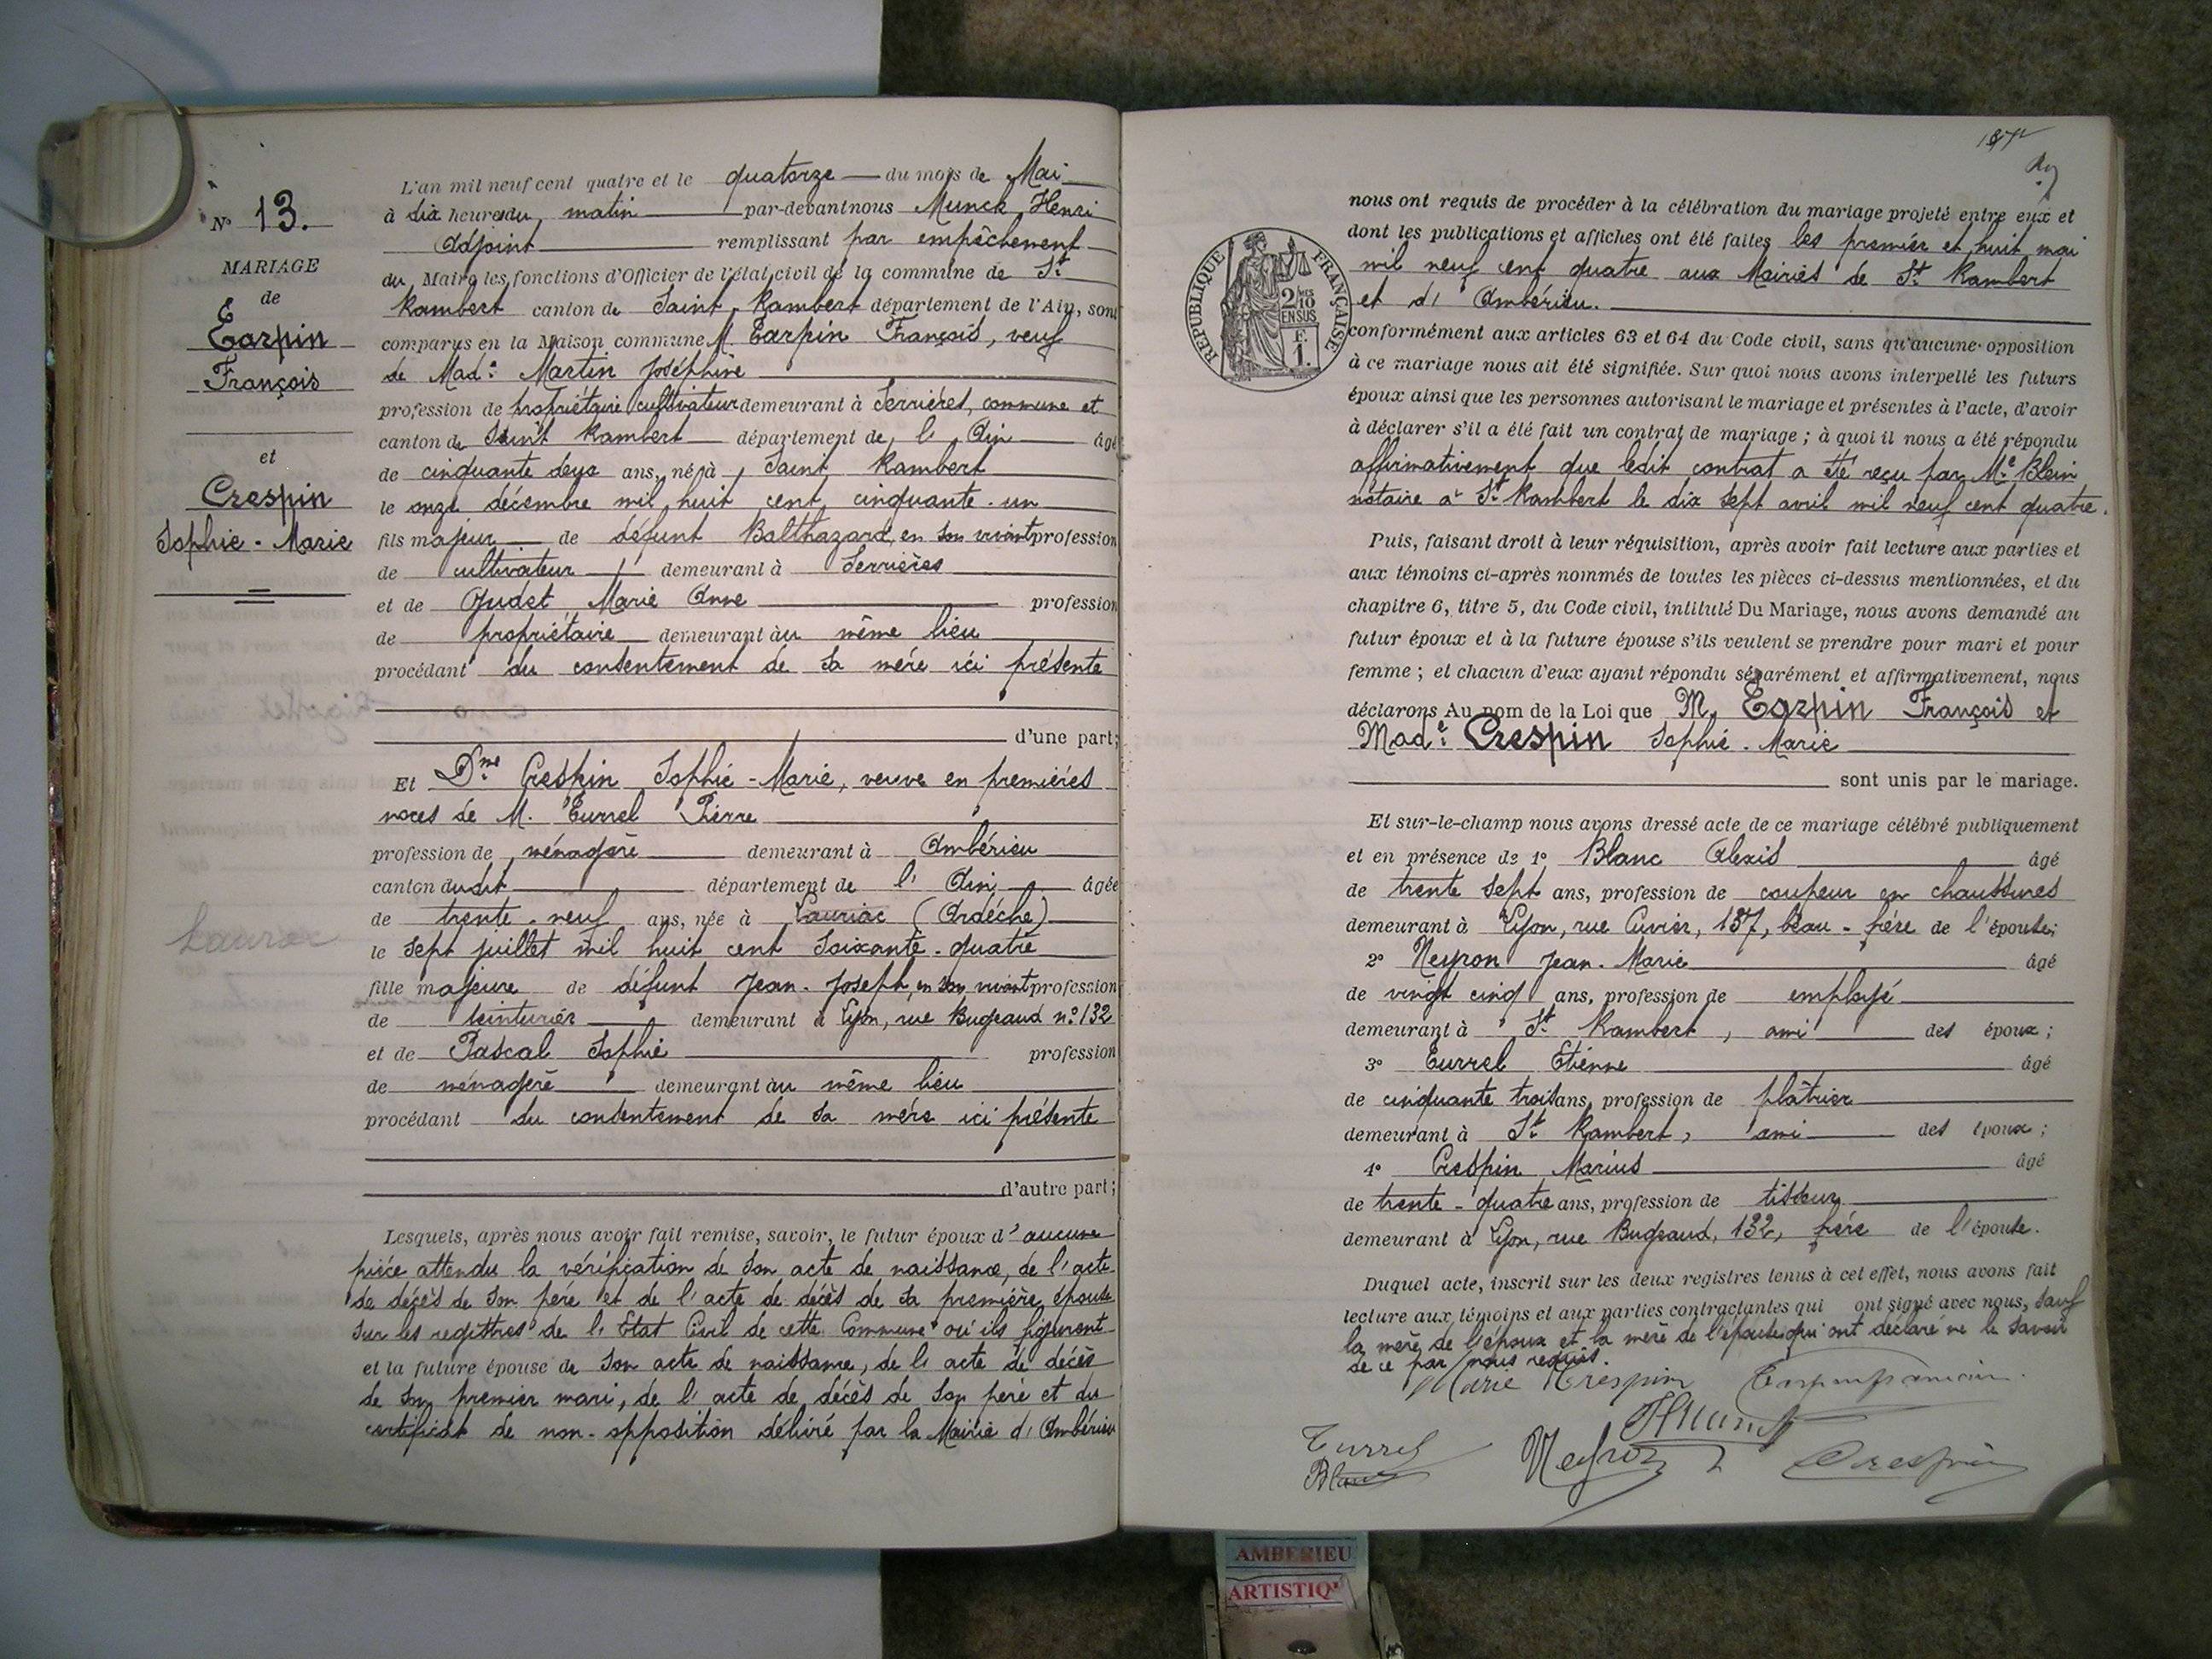 N° 13.
MARIAGE
de
Tarpin
François
et
Crespin
Sophie-Marie
Lauriac
L'an mil neuf cent quatre et le quatorze du mois de Mai
à dix heures du matin par-devant nous Munck Henri
Adjoint remplissant par empêchement
du Maire les fonctions d'Officier de l'état civil de la commune de St
Rambert canton de Saint Rambert département de l'Ain, sont
comparus en la Maison commune M. Tarpin François, veuf
de Made Martin Joséphine
profession de propriétaire cultivateur demeurant à Serrières, commune et
canton de Saint Rambert département de l'Ain âgé
de cinquante deux ans, né à Saint Rambert
le onze décembre mil huit cent cinquante-un
fils majeur de défunt Balthazard, en son vivant profession
de cultivateur demeurant à Serrières
et de Judet Marie Anne profession
de propriétaire demeurant au même lieu
procédant du consentement de sa mère ici présente
d'une part;
Et Dme Crespin Sophie-Marie, veuve en premières
noces de M. Turrel Pierre
profession de ménagère demeurant à Ambérieu
canton dudit département de l'Ain âgée
de trente-neuf ans, née à Lauriac (Ardèche)
le sept juillet mil huit cent soixante-quatre
fille majeure de défunt Jean-Joseph, en son vivant profession
de teinturier demeurant à Lyon, rue Bugeaud n° 132
et de Pascal Sophie profession
de ménagère demeurant au même lieu
procédant du consentement de sa mère ici présente
d'autre part;
Lesquels, après nous avoir fait remise, savoir, le futur époux d'aucune
pièce attendu la vérification de son acte de naissance, de l'acte
de décès de son père et de l'acte de décès de sa première épouse
sur les registres de l'Etat Civil de cette Commune où ils figurent
et la future épouse de son acte de naissance, de l'acte de décès
de son premier mari, de l'acte de décès de son père et du
certificat de non-opposition délivré par la Mairie d'Ambérieu
RÉPUBLIQUE FRANÇAISE
2/10mes
EN SUS
F.
1.
nous ont requis de procéder à la célébration du mariage projeté entre eux et
dont les publications et affiches ont été faites les premier et huit mai
mil neuf cent quatre aux Mairies de St Rambert
et d'Ambérieu.
conformément aux articles 63 et 64 du Code civil, sans qu'aucune opposition
à ce mariage nous ait été signifiée. Sur quoi nous avons interpellé les futurs
époux ainsi que les personnes autorisant le mariage et présentes à l'acte, d'avoir
à déclarer s'il a été fait un contrat de mariage; à quoi il nous a été répondu
affirmativement que ledit contrat a été reçu par Me Blein
notaire à St Rambert le dix sept avril mil neuf cent quatre.
Puis, faisant droit à leur réquisition, après avoir fait lecture aux parties et
aux témoins ci-après nommés de toutes les pièces ci-dessus mentionnées, et du
chapitre 6, titre 5, du Code civil, intitulé Du Mariage, nous avons demandé au
futur époux et à la future épouse s'ils veulent se prendre pour mari et pour
femme; et chacun d'eux ayant répondu séparément et affirmativement, nous
déclarons Au nom de la Loi que M. Tarpin François et
Made Crespin Sophie-Marie
sont unis par le mariage.
Et sur-le-champ nous avons dressé acte de ce mariage célébré publiquement
et en présence de 1° Blanc Alexis âgé
de trente sept ans, profession de coupeur en chaussures
demeurant à Lyon, rue Cuvier, 157, beau-frère de l'épouse;
2° Neyron Jean-Marie âgé
de vingt cinq ans, profession de employé
demeurant à St Rambert, ami des époux;
3° Turrel Etienne âgé
de cinquante trois ans, profession de plâtrier
demeurant à St Rambert, ami des époux;
4° Crespin Marius âgé
de trente-quatre ans, profession de tisseur
demeurant à Lyon, rue Bugeaud, 132, frère de l'épouse.
Duquel acte, inscrit sur les deux registres tenus à cet effet, nous avons fait
lecture aux témoins et aux parties contractantes qui ont signé avec nous, sauf
la mère de l'époux et la mère de l'épouse qui ont déclaré ne le savoir
de ce par nous requis.
Marie Crespin Tarpin françois
HMunck
Turrel
Blanc Neyron Crespin
AMBERIEU
ARTISTIQ